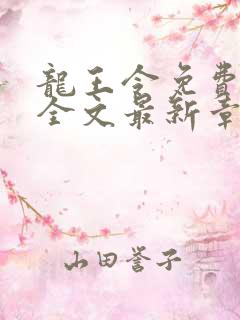 龍王令免費
全文最新章
山田誉子